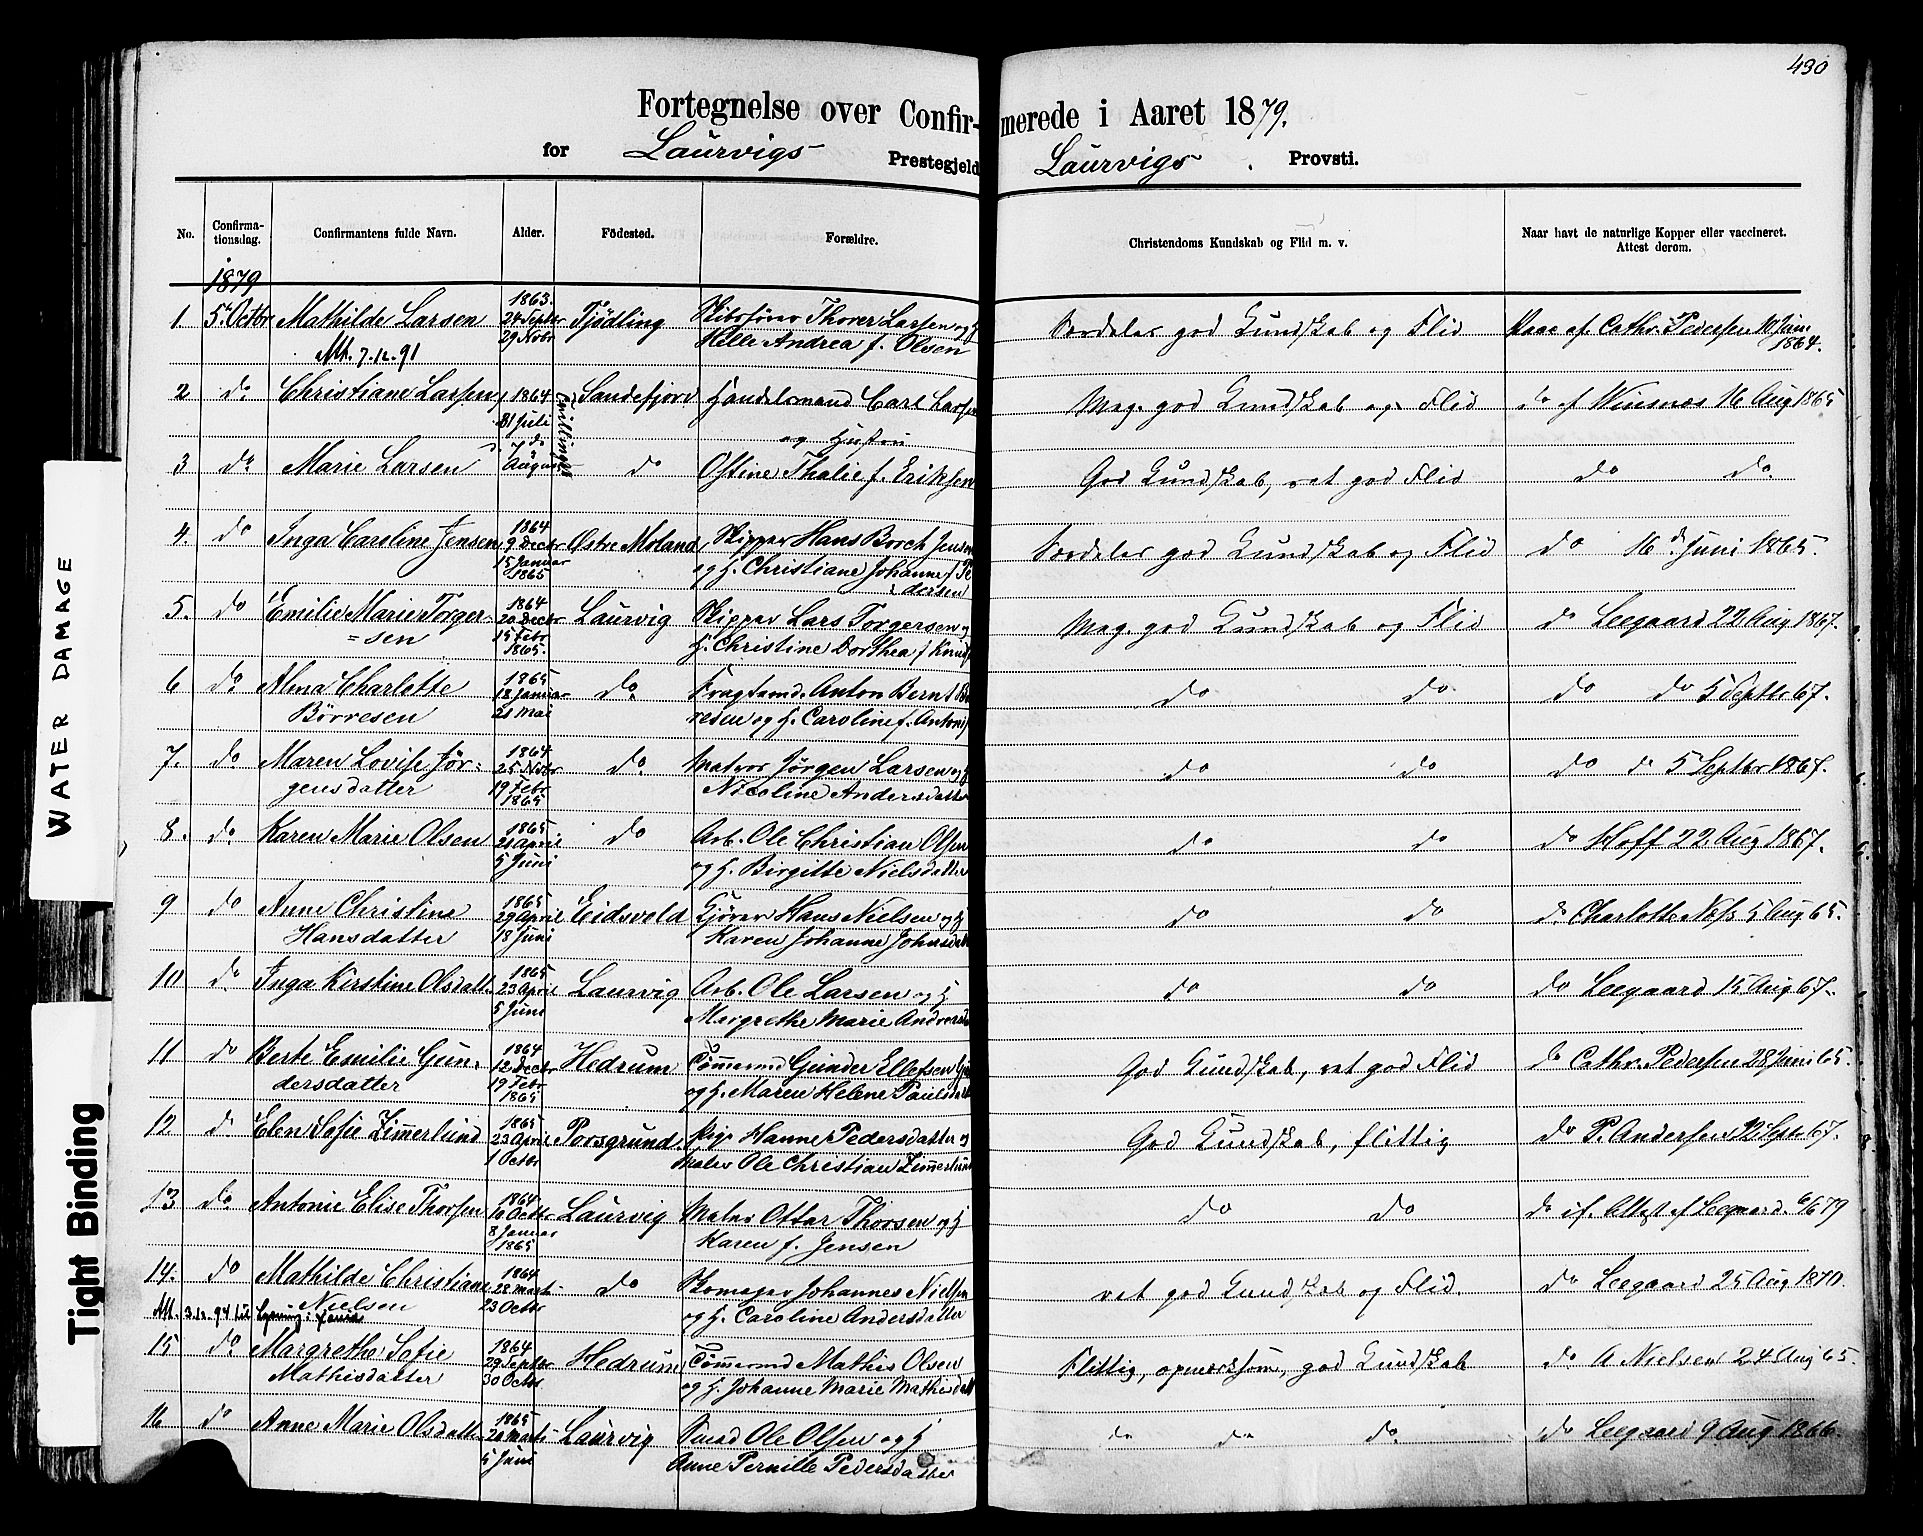 430
Fortegnelse over Confirmerede i Aaret 1879.
for Laurvigs Prestegjeld Laurvigs Provsti.
No. Confirmationsdag. Confirmantens fulde Navn. Alder. Fødested. Forældre. Christendoms Kundskab og Flid m. v. Naar havt de naturlige Kopper eller vaccineret. Attest derom.
1879
1863.
1 5t Octbr Mathilde Larsen 24 Septbr Tjödling Skibsfører Thorer Larsen og H. Særdeles god Kundskab og Flid Vacc af Cathr. Pedersen 10 Juni
Att. 7.12.91 29 Novbr Helle Andrea f. Olsen 1864.
2 do Christiane Larsen 1864 Sandefjord Handelsmand Carl Larsen Meg. god Kundskab og Flid do af Winsnes 16 Aug 1865
31 Juli tvillinger og Hustru
3 do Marie Larsen 7 do August do Ostine Thalie f. Eriksen God Kundskab, ret god Flid do do
1864
4. do Inga Caroline Jensen 9 Decbr Østre Moland Skipper Hans Borch Jensen Særdeles god Kundskab og Flid do 16 d. Juni 1865.
15 Januar og H. Christiane Johanne f. Pe
1865 dersen
1864
5. do Emilie Marie Torger- 20 Decbr Laurvig Skipper Lars Torgersen og Meg. god Kundskab og Flid do Leegaard 22 Aug 1867.
=sen 15 Febr H. Christine Dorthea f.
1865.
1865
6 do Alma Charlotte 18 Januar do Fragtemd. Anton Bernt do do do do 5 Septbr 67.
Børresen 21 Mai resen og H. Caroline f. Antoni
1864
7. do Maren Lovise Jør- 25 Novbr do Matros Jørgen Larsen og H. do do do do 5 Septbr 1867.
gensdatter 19 Febr Nicoline Andersdatter
1865
1865
8. do Karen Marie Olsen 21 April do Arb. Ole Christian Olsen do do do Hoff 22 Aug 1867.
5 Juni og H. Birgitte Nielsdatter
1865
9 do Anne Christine 29 April Eidsvold Kjører Hans Nielsen og H. do do do Charlotte Næss 5 Aug 65.
Hansdatter 18 Juni Karen Johanne Johnsdatt
1865
10 do Inga Kirstine Olsdatt. 23 April Laurvig Arb. Ole Larsen og H. do do do Leegaard 15 Aug 67.
5 Juni Margrethe Marie
1864
11 do Berte Emilie Gun- 12 Decbr Hedrum Tømmermd Gunder Ellefsen God Kundskab, ret god Flid do Cathr. Pedersen 28 Juni 65.
dersdatter 19 Febr og H. Maren Helene Paulsdatt
1865
1865
12 d. Elen Sofie Zimmerlund 23 April Porsgrund Pige Hanne Pedersdatter og God Kundskab, flittig do P. Andersen 12 Septr 67.
1 Octbr Maler Ole Christian Zimmerlund
1864
13 do Antonie Elise Thorsen 10 Octbr Laurvig Maler Ottar Thorsen og H. do do do if. Attest af Leegaard 6/6 79
8 Januar Karen f. Jensen
1865
1864
14. do Mathilde Christiane 28 Marts do Skomager Johannes Nielsen ret god Kundskab og Flid. do Leegaard 25 Aug 1870.
Nielsen 23 Octbr og H. Caroline Andersdatter
Att. 3.12.94 til Lysning i
1864
15 do Margrethe Sofie 29 Septbr Hedrum Tømmermd Mathis Olsen Flittig, opmærksom, god Kundskab do A Nielsen 24 Aug 65.
Mathisdatter 30 Octbr og H. Johanne Marie Mathisdatt
1865
16 do Anne Marie Olsdatter 20 Marts Laurvig Smed Ole Olsen og H. do do do do Leegaard 9 Aug 1866.
5 Juni Anne Pernille Pedersdatter
WATER DAMAGE
Tight Binding